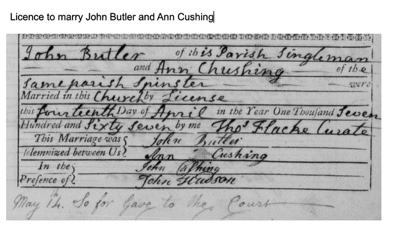 Licence to marry John Butler and Ann Cushing
John Butler of this Parish Singleman
and Ann Chushing of the
same parish Spinster were
Married in this Church by License
this fourteenth Day of April in the Year One Thousand Seven
Hundred and Sixty Seven by me Thos Flacke Curate
This Marriage was John Butler
solemnized between Us Ann Cushing
In the John
Presence of John Hudson
May 14. So far Gave to the Court